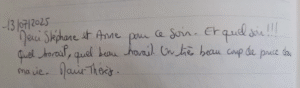 -13/07/2025
Merci Stéphane et Anne pour ce soin. Et quel soin !!!
Quel travail, quel beau travail. Un très beau coup de pouce dans
ma vie. Marie Thérèse.